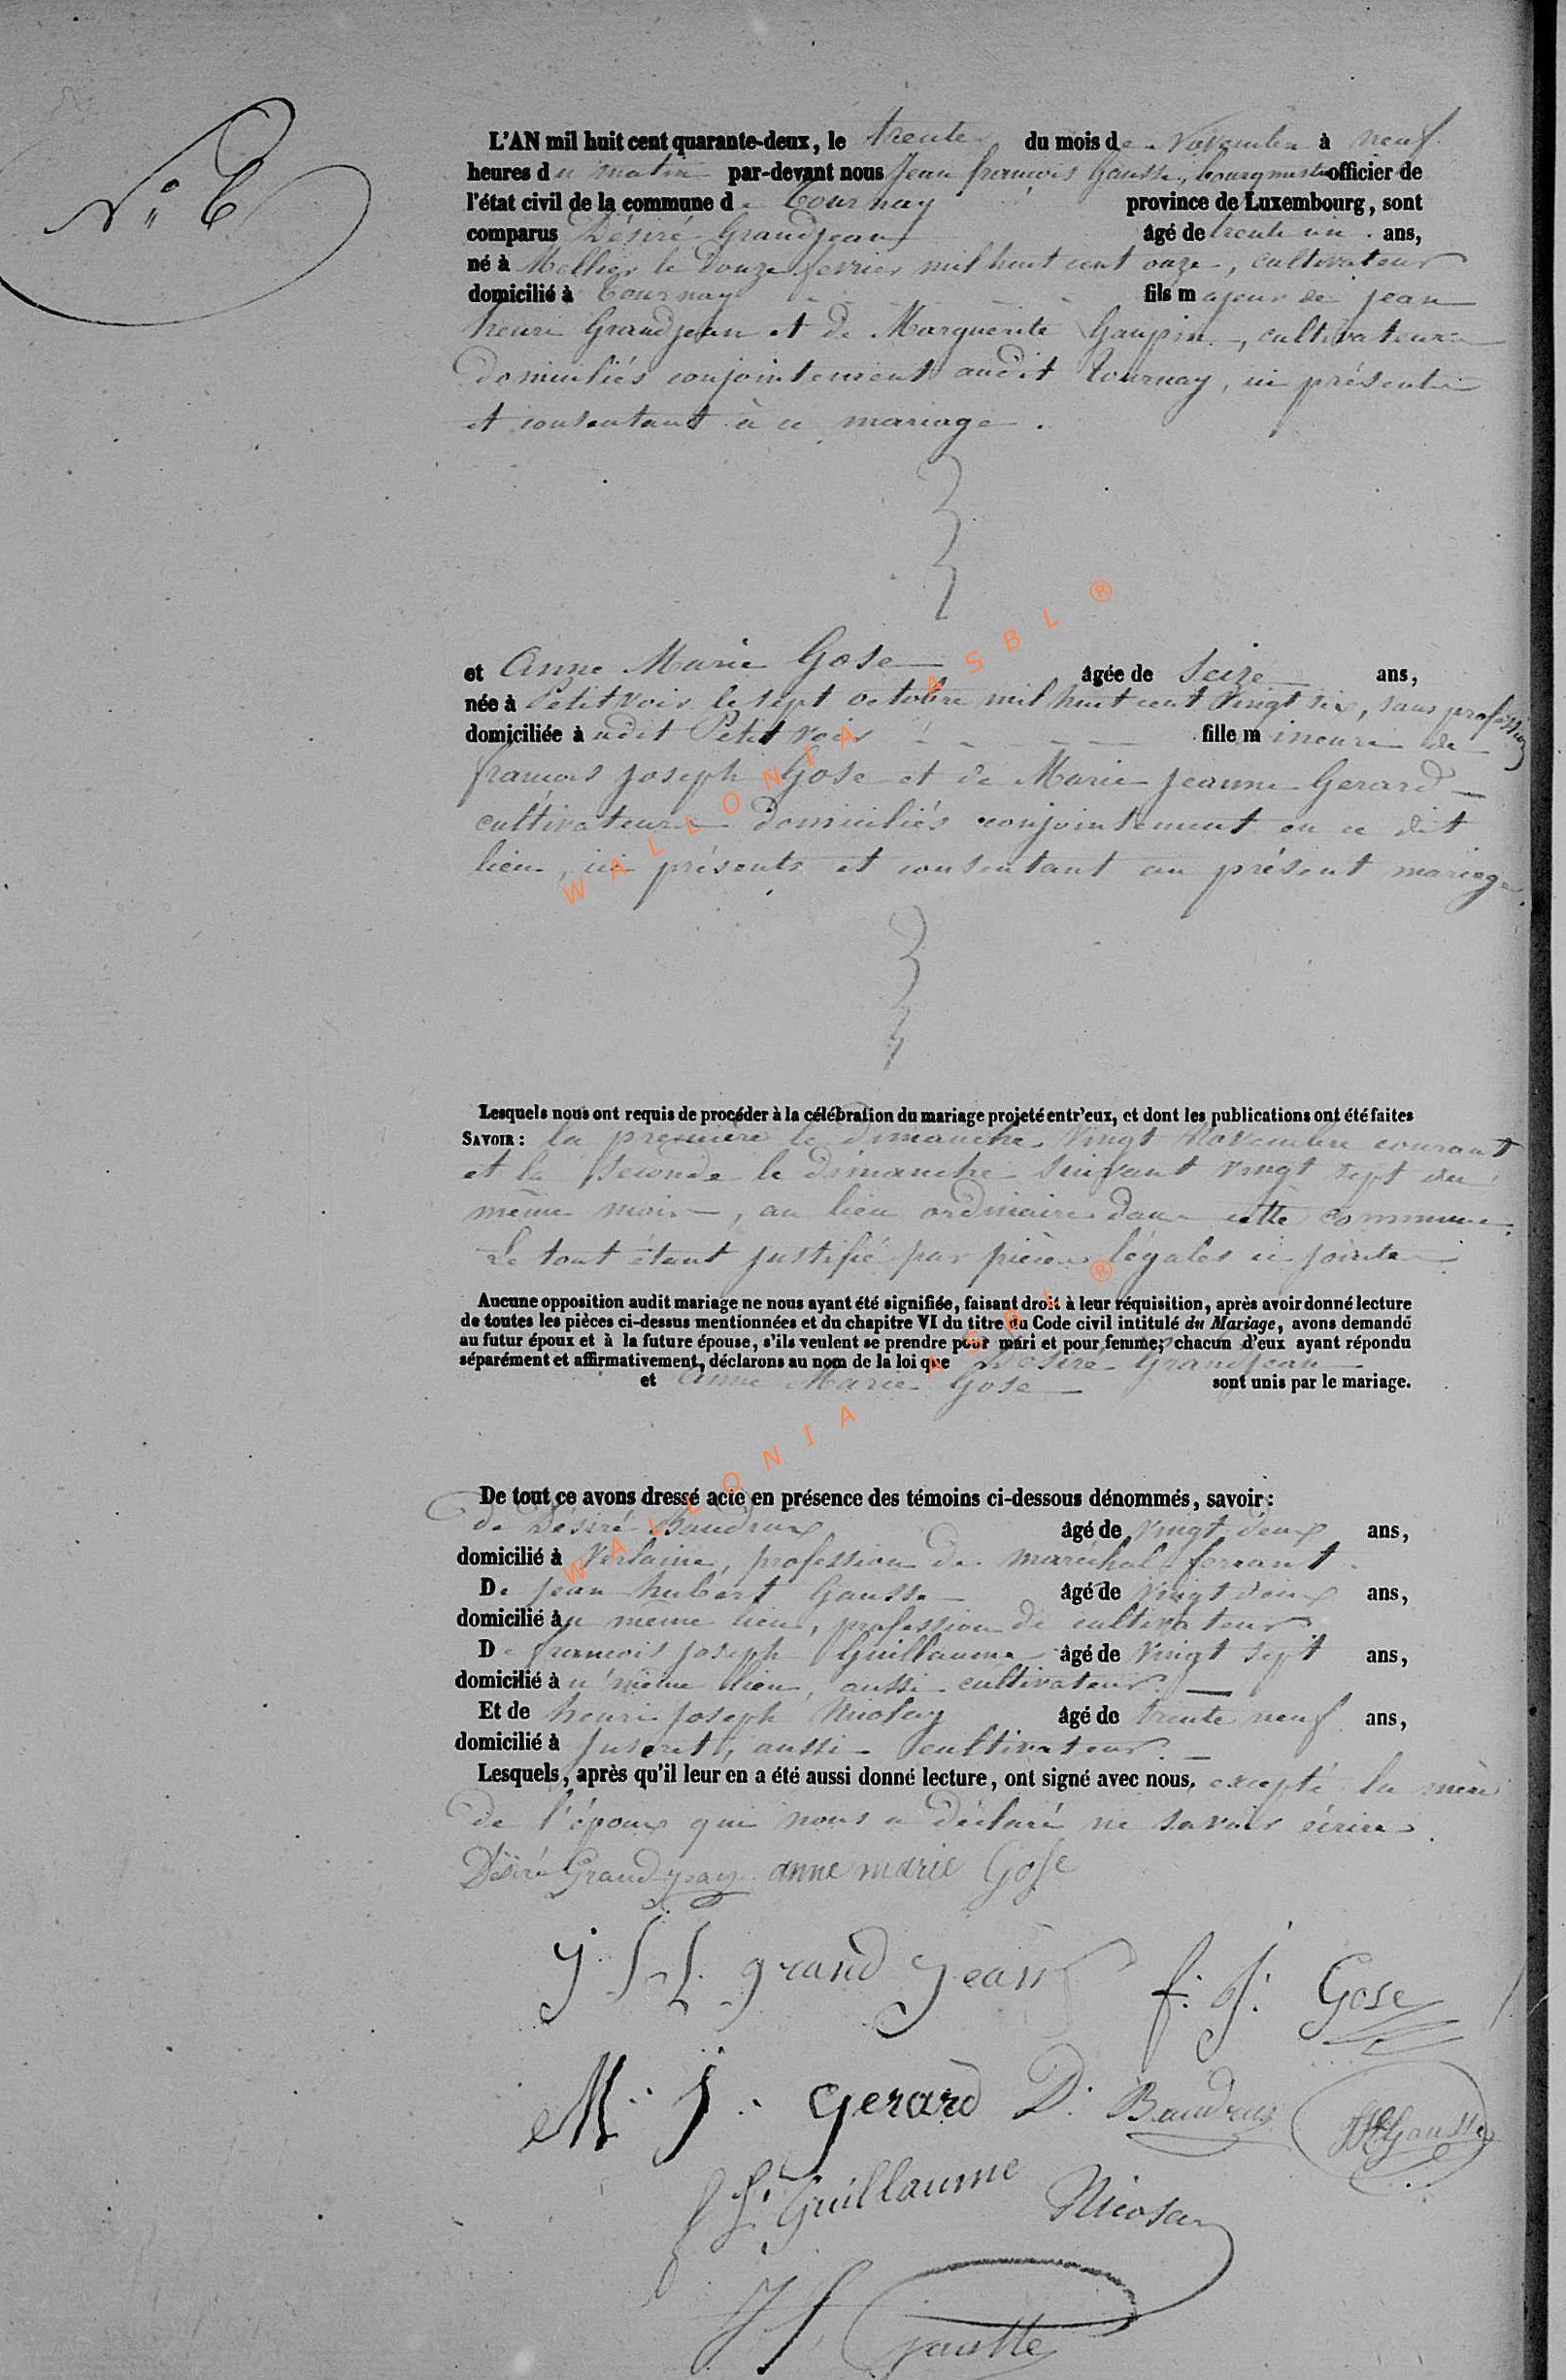 N° 6
L'AN mil huit cent quarante-deux, le trente du mois de Novembre à neuf
heures du matin par-devant nous Jean françois Gausse, bourgmestre officier de
l'état civil de la commune de Tournay province de Luxembourg, sont
comparus Désiré Grandjean âgé de trente un ans,
né à Mellier le Douze fevrier mil huit cent onze, cultivateur
domicilié à Tournay fils majeur de jean
henri Grandjean et de Marguerite Gaupin, cultivateurs
domiciliés conjointement audit Tournay, ici présents
et consentant à ce mariage.
et Anne Marie Gose âgée de Seize ans,
née à Petitvoir le sept octobre mil huit cent vingt six, sans profession
domiciliée à udit Petit voir fille mineure de
françois joseph Gose et de Marie jeanne Gerard
cultivateurs domiciliés conjointement en ce dit
lieu, ici présents et consentant au présent mariage.
Lesquels nous ont requis de procéder à la célébration du mariage projeté entr'eux, et dont les publications ont été faites
SAVOIR : la première le Dimanche vingt Novembre courant
et la seconde le dimanche suivant vingt sept du
même mois, au lieu ordinaire dans cette commune.
Le tout étant justifié par pièces légales ci jointes
Aucune opposition audit mariage ne nous ayant été signifiée, faisant droit à leur réquisition, après avoir donné lecture
de toutes les pièces ci-dessus mentionnées et du chapitre VI du titre du Code civil intitulé du Mariage, avons demandé
au futur époux et à la future épouse, s'ils veulent se prendre pour mari et pour femme; chacun d'eux ayant répondu
séparément et affirmativement, déclarons au nom de la loi que Désiré Grandjean
et Anne Marie Gose sont unis par le mariage.
De tout ce avons dressé acte en présence des témoins ci-dessous dénommés, savoir :
de Désiré Baudrux âgé de vingt deux ans,
domicilié à Verlaine, profession de maréchal ferrant.
De jean hubert Gausse âgé de vingt deux ans,
domicilié à u même lieu, profession de cultivateur
De françois joseph Guillaume âgé de vingt sept ans,
domicilié à u même lieu, aussi cultivateur.
Et de henri joseph Nicolay âgé de trente neuf ans,
domicilié à Juseret, aussi cultivateur.
Lesquels, après qu'il leur en a été aussi donné lecture, ont signé avec nous, excepté la mère
de l'époux qui nous a déclaré ne savoir écrire.
Désiré Grandjean anne marie Gose
J. H. grand jean f. J. Gose
M. J. Gerard D. Baudrux JH Gausse
f J. Guillaume Nicolay
J f Gausse
WALLONIA ASBL ®
WALLONIA ASBL ®